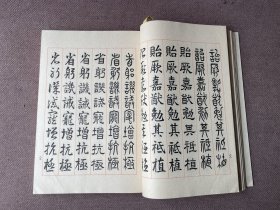 貽厥嘉猷勉其祗植
貽厥嘉猷勉其祗植
貽厥嘉猷勉其祗植
貽厥嘉猷勉其祗植
省躬譏誡寵增抗極
省躬譏誡寵增抗極
省躬譏誡寵增抗極
省躬譏誡寵增抗極
省躬譏誡寵增抗極